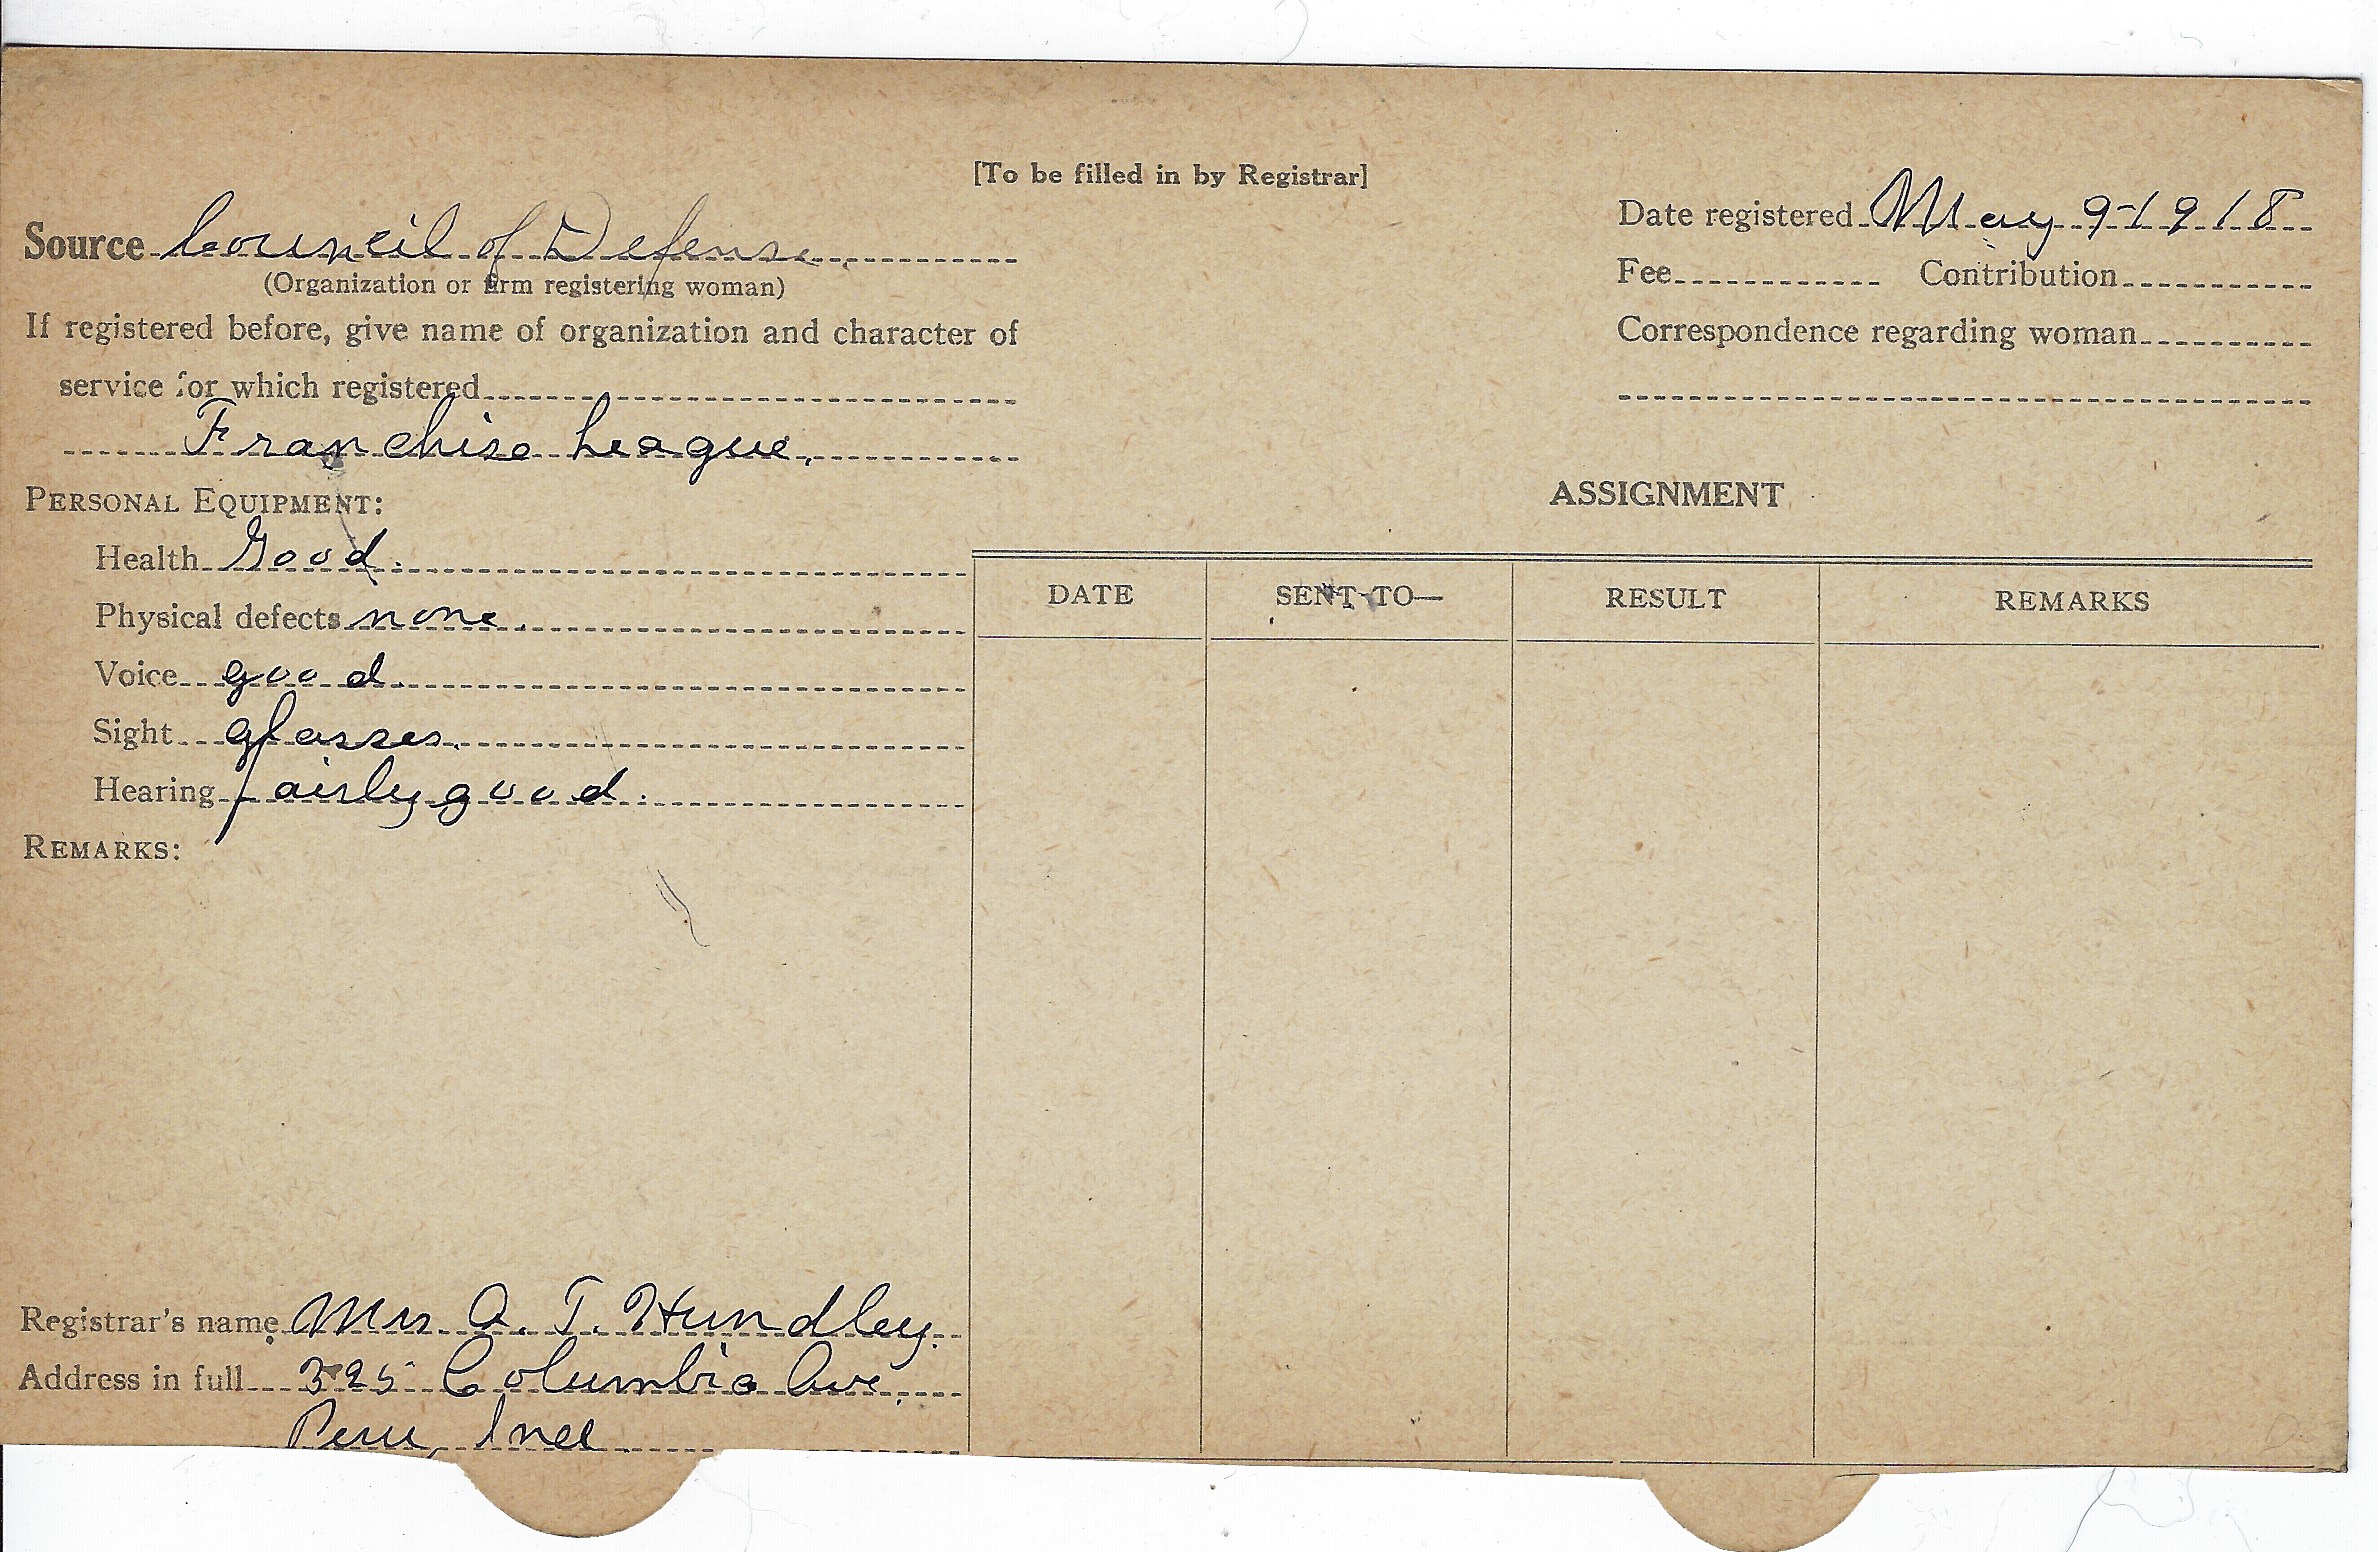 [To be filled in by Registrar]
Source Council of Defense.
(Organization or firm registering woman)
If registered before, give name of organization and character of
service for which registered
Franchise League.
PERSONAL EQUIPMENT:
Health Good.
Physical defects none.
Voice good.
Sight glasses.
Hearing fairly good.
REMARKS:
Registrar's name Mrs. A. T. Hundley.
Address in full 325 Columbia Ave.
Peru, Ind
Date registered May 9-1918
Fee Contribution
Correspondence regarding woman
ASSIGNMENT
DATE SENT TO— RESULT REMARKS